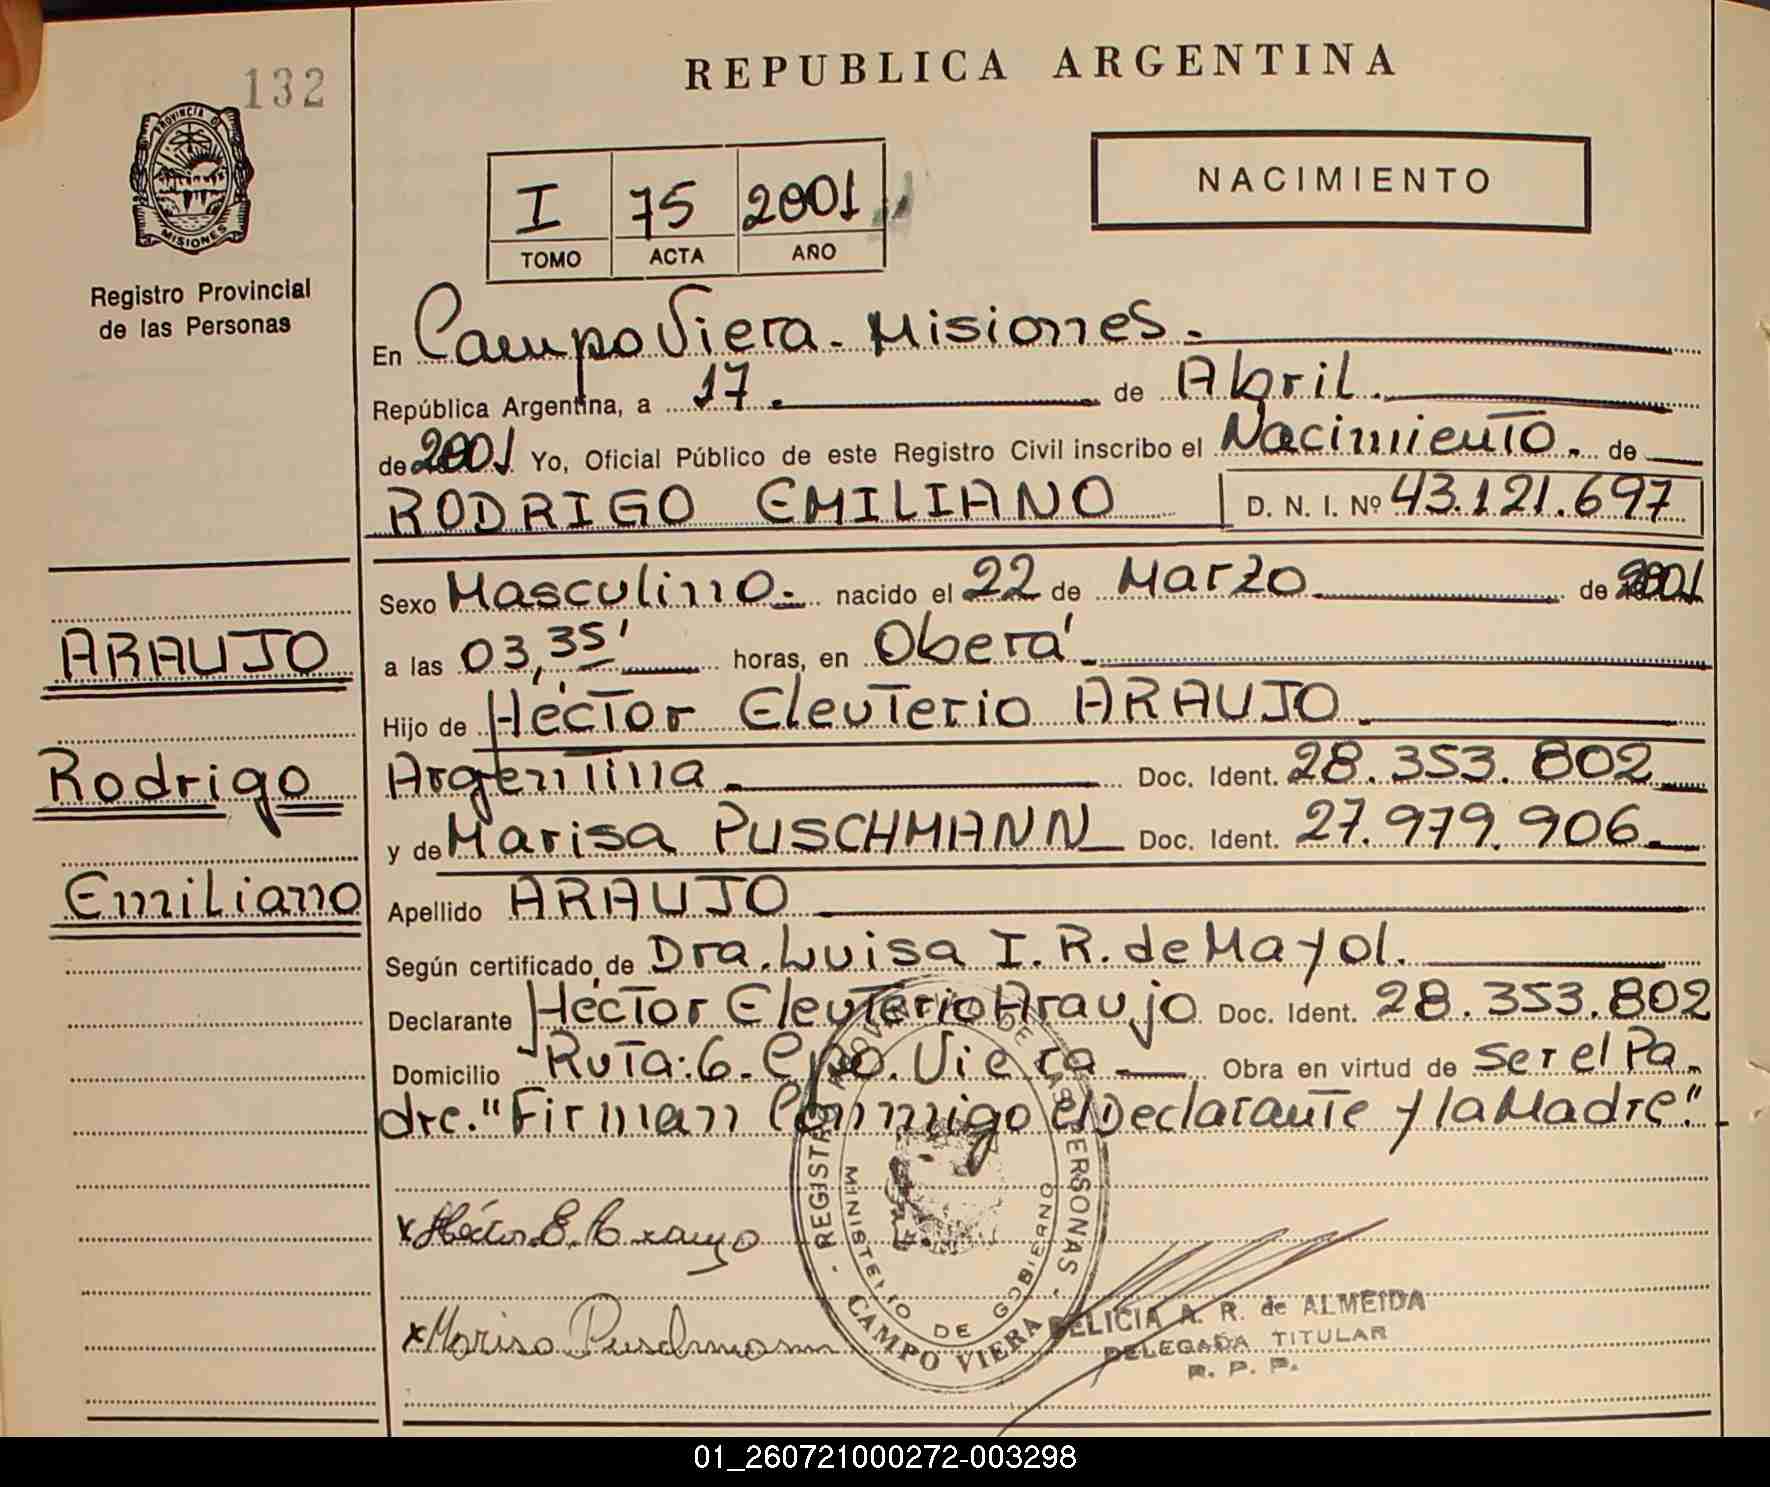 132
REPUBLICA ARGENTINA
PROVINCIA D
MISIONES
Registro Provincial
de las Personas
NACIMIENTO
I 75 2001
TOMO ACTA AÑO
En Campo Viera - Misiones.
República Argentina, a 17. de Abril.
de 2001 Yo, Oficial Público de este Registro Civil inscribo el Nacimiento. de
RODRIGO EMILIANO D. N. I. Nº 43.121.697
Sexo Masculino. nacido el 22 de Marzo de 2001
a las 03,35' horas, en Oberá.
Hijo de Héctor Eleuterio ARAUJO.
Argentina. Doc. Ident. 28.353.802
y de Marisa PUSCHMANN Doc. Ident. 27.979.906.
Apellido ARAUJO
Según certificado de Dra. Luisa I. R. de Mayol.
Declarante Héctor Eleuterio Araujo Doc. Ident. 28.353.802
Domicilio Ruta: 6. Cpo. Viera Obra en virtud de ser el Pa-
dre. "Firman Conmigo el Declarante y la Madre".-
ARAUJO
Rodrigo
Emiliano
x Héctor E. Araujo
x Marisa Puschmann
REGISTRO PROVINCIAL DE LAS PERSONAS
MINISTERIO DE GOBIERNO
CAMPO VIERA
DELICIA A. R. de ALMEIDA
DELEGADA TITULAR
R. P. P.
01_260721000272-003298